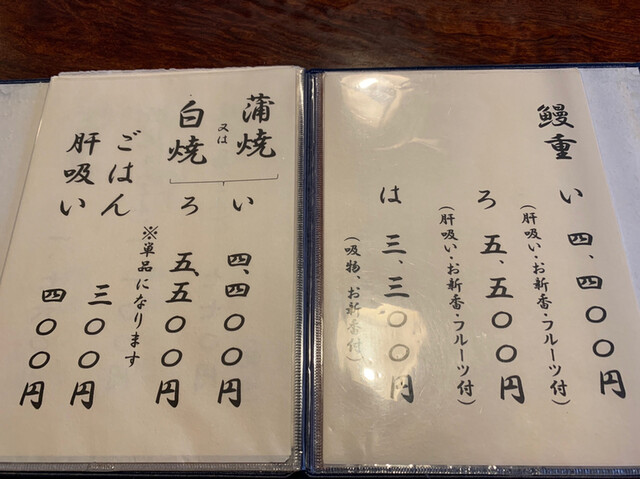 鰻重
い 四、四〇〇円
（肝吸い・お新香・フルーツ付）
ろ 五、五〇〇円
（肝吸い・お新香・フルーツ付）
は 三、三〇〇円
（吸物、お新香付）
蒲焼
又は
白焼
い 四、四〇〇円
ろ 五、五〇〇円
※単品になります
ごはん 三〇〇円
肝吸い 四〇〇円